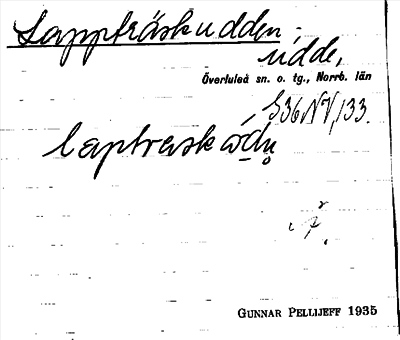 Lappträskudden
udde,
Överluleå sn. o. tg., Norrb. län
S36NV,133.
GUNNAR PELLIJEFF 1935